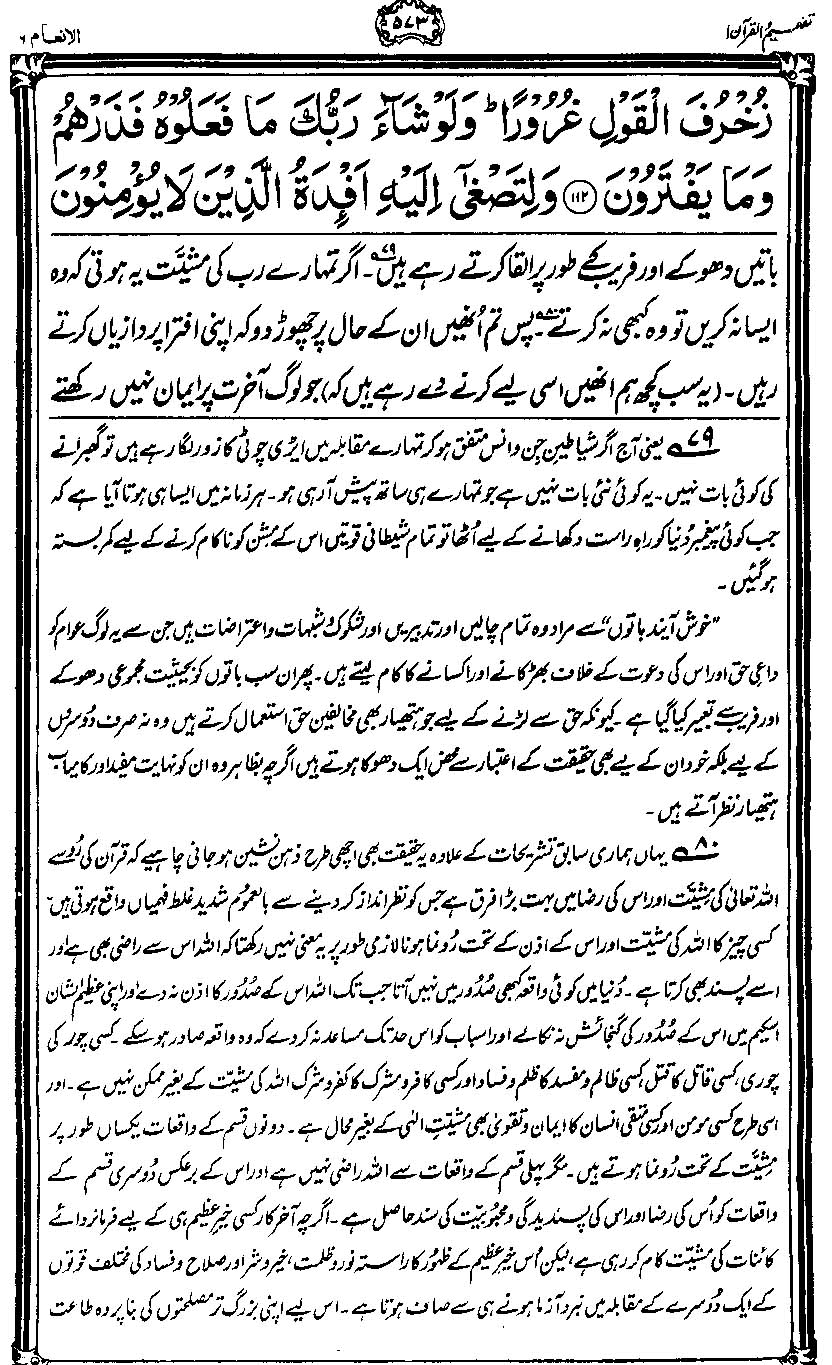 تفہیم القرآن ۱
۵۷۳
الانعام ۶
زُخْرُفَ الْقَوْلِ غُرُوْرًا ؕ وَلَوْ شَآءَ رَبُّكَ مَا فَعَلُوْهُ فَذَرْهُمْ
وَمَا يَفْتَرُوْنَ ۝۱۱۲ وَلِتَصْغٰۤى اِلَيْهِ اَفْـِٕدَةُ الَّذِيْنَ لَا يُؤْمِنُوْنَ
باتیں دھوکے اور فریب کے طور پر القا کرتے رہے ہیں۷۹۔ اگر تمہارے رب کی مشیّت یہ ہوتی کہ وہ
ایسا نہ کریں تو وہ کبھی نہ کرتے۸۰۔ پس تم اُنھیں ان کے حال پر چھوڑ دو کہ اپنی افترا پردازیاں کرتے
رہیں۔ (یہ سب کچھ ہم انھیں اسی لیے کرنے دے رہے ہیں کہ) جو لوگ آخرت پر ایمان نہیں رکھتے
۷۹ یعنی آج اگر شیاطینِ جن و انس متفق ہو کر تمہارے مقابلہ میں ایڑی چوٹی کا زور لگا رہے ہیں تو گھبرانے
کی کوئی بات نہیں۔ یہ کوئی نئی بات نہیں ہے جو تمہارے ہی ساتھ پیش آ رہی ہو۔ ہر زمانہ میں ایسا ہی ہوتا آیا ہے کہ
جب کوئی پیغمبر دُنیا کو راہِ راست دکھانے کے لیے اُٹھا تو تمام شیطانی قوتیں اس کے مشن کو ناکام کرنے کے لیے کمر بستہ
ہوگئیں۔
”خوش آیند باتوں“ سے مراد وہ تمام چالیں اور تدبیریں اور شکوک و شبہات و اعتراضات ہیں جن سے یہ لوگ عوام کو
داعیِ حق اور اس کی دعوت کے خلاف بھڑکانے اور اکسانے کا کام لیتے ہیں۔ پھر ان سب باتوں کو بحیثیت مجموعی دھوکے
اور فریب سے تعبیر کیا گیا ہے۔ کیونکہ حق سے لڑنے کے لیے جو ہتھیار بھی مخالفینِ حق استعمال کرتے ہیں وہ نہ صرف دُوسروں
کے لیے بلکہ خود ان کے لیے بھی حقیقت کے اعتبار سے محض ایک دھوکا ہوتے ہیں اگرچہ بظاہر وہ ان کو نہایت مفید اور کامیاب
ہتھیار نظر آتے ہیں۔
۸۰ یہاں ہماری سابق تشریحات کے علاوہ یہ حقیقت بھی اچھی طرح ذہن نشین ہو جانی چاہیے کہ قرآن کی رُو سے
اللہ تعالیٰ کی مشیّت اور اس کی رضا میں بہت بڑا فرق ہے جس کو نظر انداز کر دینے سے بالعموم شدید غلط فہمیاں واقع ہوتی ہیں۔
کسی چیز کا اللہ کی مشیّت اور اس کے اذن کے تحت رُونما ہونا لازمی طور پر یہ معنی نہیں رکھتا کہ اللہ اس سے راضی بھی ہے اور
اسے پسند بھی کرتا ہے۔ دُنیا میں کوئی واقعہ کبھی صُدُور میں نہیں آتا جب تک اللہ اس کے صُدُور کا اذن نہ دے اور اپنی عظیم الشان
اسکیم میں اس کے صُدُور کی گنجائش نہ نکالے اور اسباب کو اس حد تک مساعد نہ کر دے کہ وہ واقعہ صادر ہو سکے۔ کسی چور کی
چوری، کسی قاتل کا قتل، کسی ظالم و مفسد کا ظلم و فساد اور کسی کافر و مشرک کا کفر و شرک اللہ کی مشیّت کے بغیر ممکن نہیں ہے۔ اور
اسی طرح کسی مومن اور کسی متقی انسان کا ایمان و تقویٰ بھی مشیّتِ الٰہی کے بغیر محال ہے۔ دونوں قسم کے واقعات یکساں طور پر
مشیّت کے تحت رُونما ہوتے ہیں۔ مگر پہلی قسم کے واقعات سے اللہ راضی نہیں ہے اور اس کے برعکس دُوسری قسم کے
واقعات کو اُس کی رضا اور اس کی پسندیدگی و محبوبیت کی سند حاصل ہے۔ اگرچہ آخر کار کسی خیرِ عظیم ہی کے لیے فرمانروائے
کائنات کی مشیّت کام کر رہی ہے، لیکن اُس خیرِ عظیم کے ظہور کا راستہ نور و ظلمت، خیر و شر اور صلاح و فساد کی مختلف قوتوں
کے ایک دُوسرے کے مقابلہ میں نبرد آزما ہونے ہی سے صاف ہوتا ہے۔ اس لیے اپنی بزرگ تر مصلحتوں کی بنا پر وہ طاعت